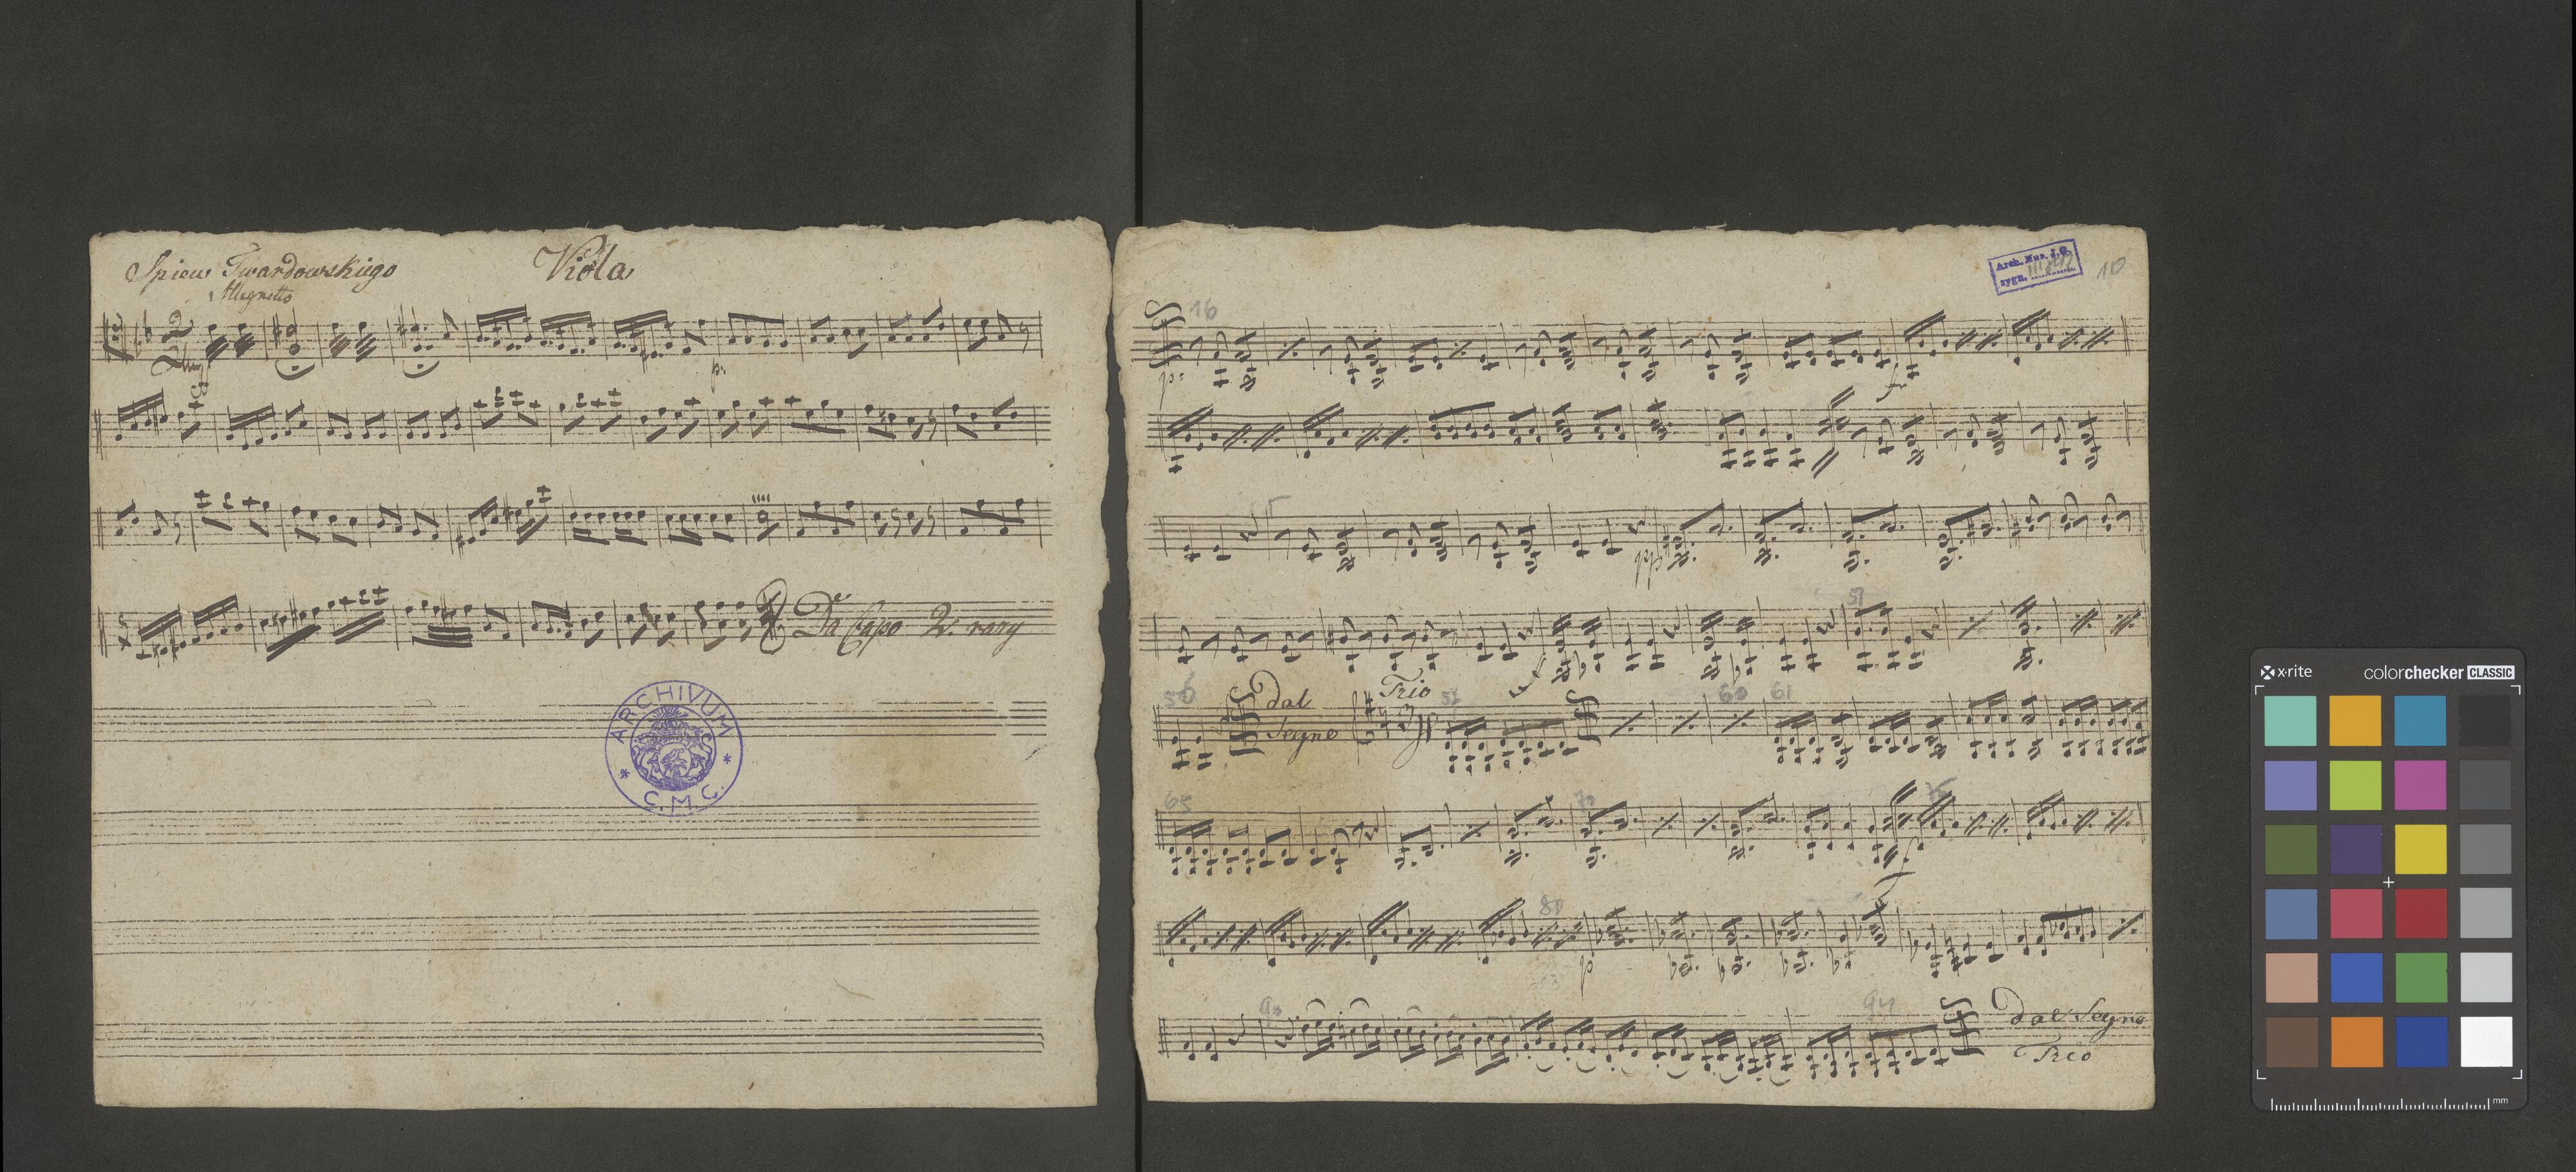 Spiew Twardowskiego
Viola
Allegretto
p:
Da Capo 2. razy
ARCHIVUM
C.M.C.
Arch. Mus. J.G.
sygn.
10
16
p:
f
pp
f
51
56
dal
Segno
Trio
60
61
65
70
f
80
p
94
dal Segno
Trio
x-rite
colorchecker CLASSIC
mm